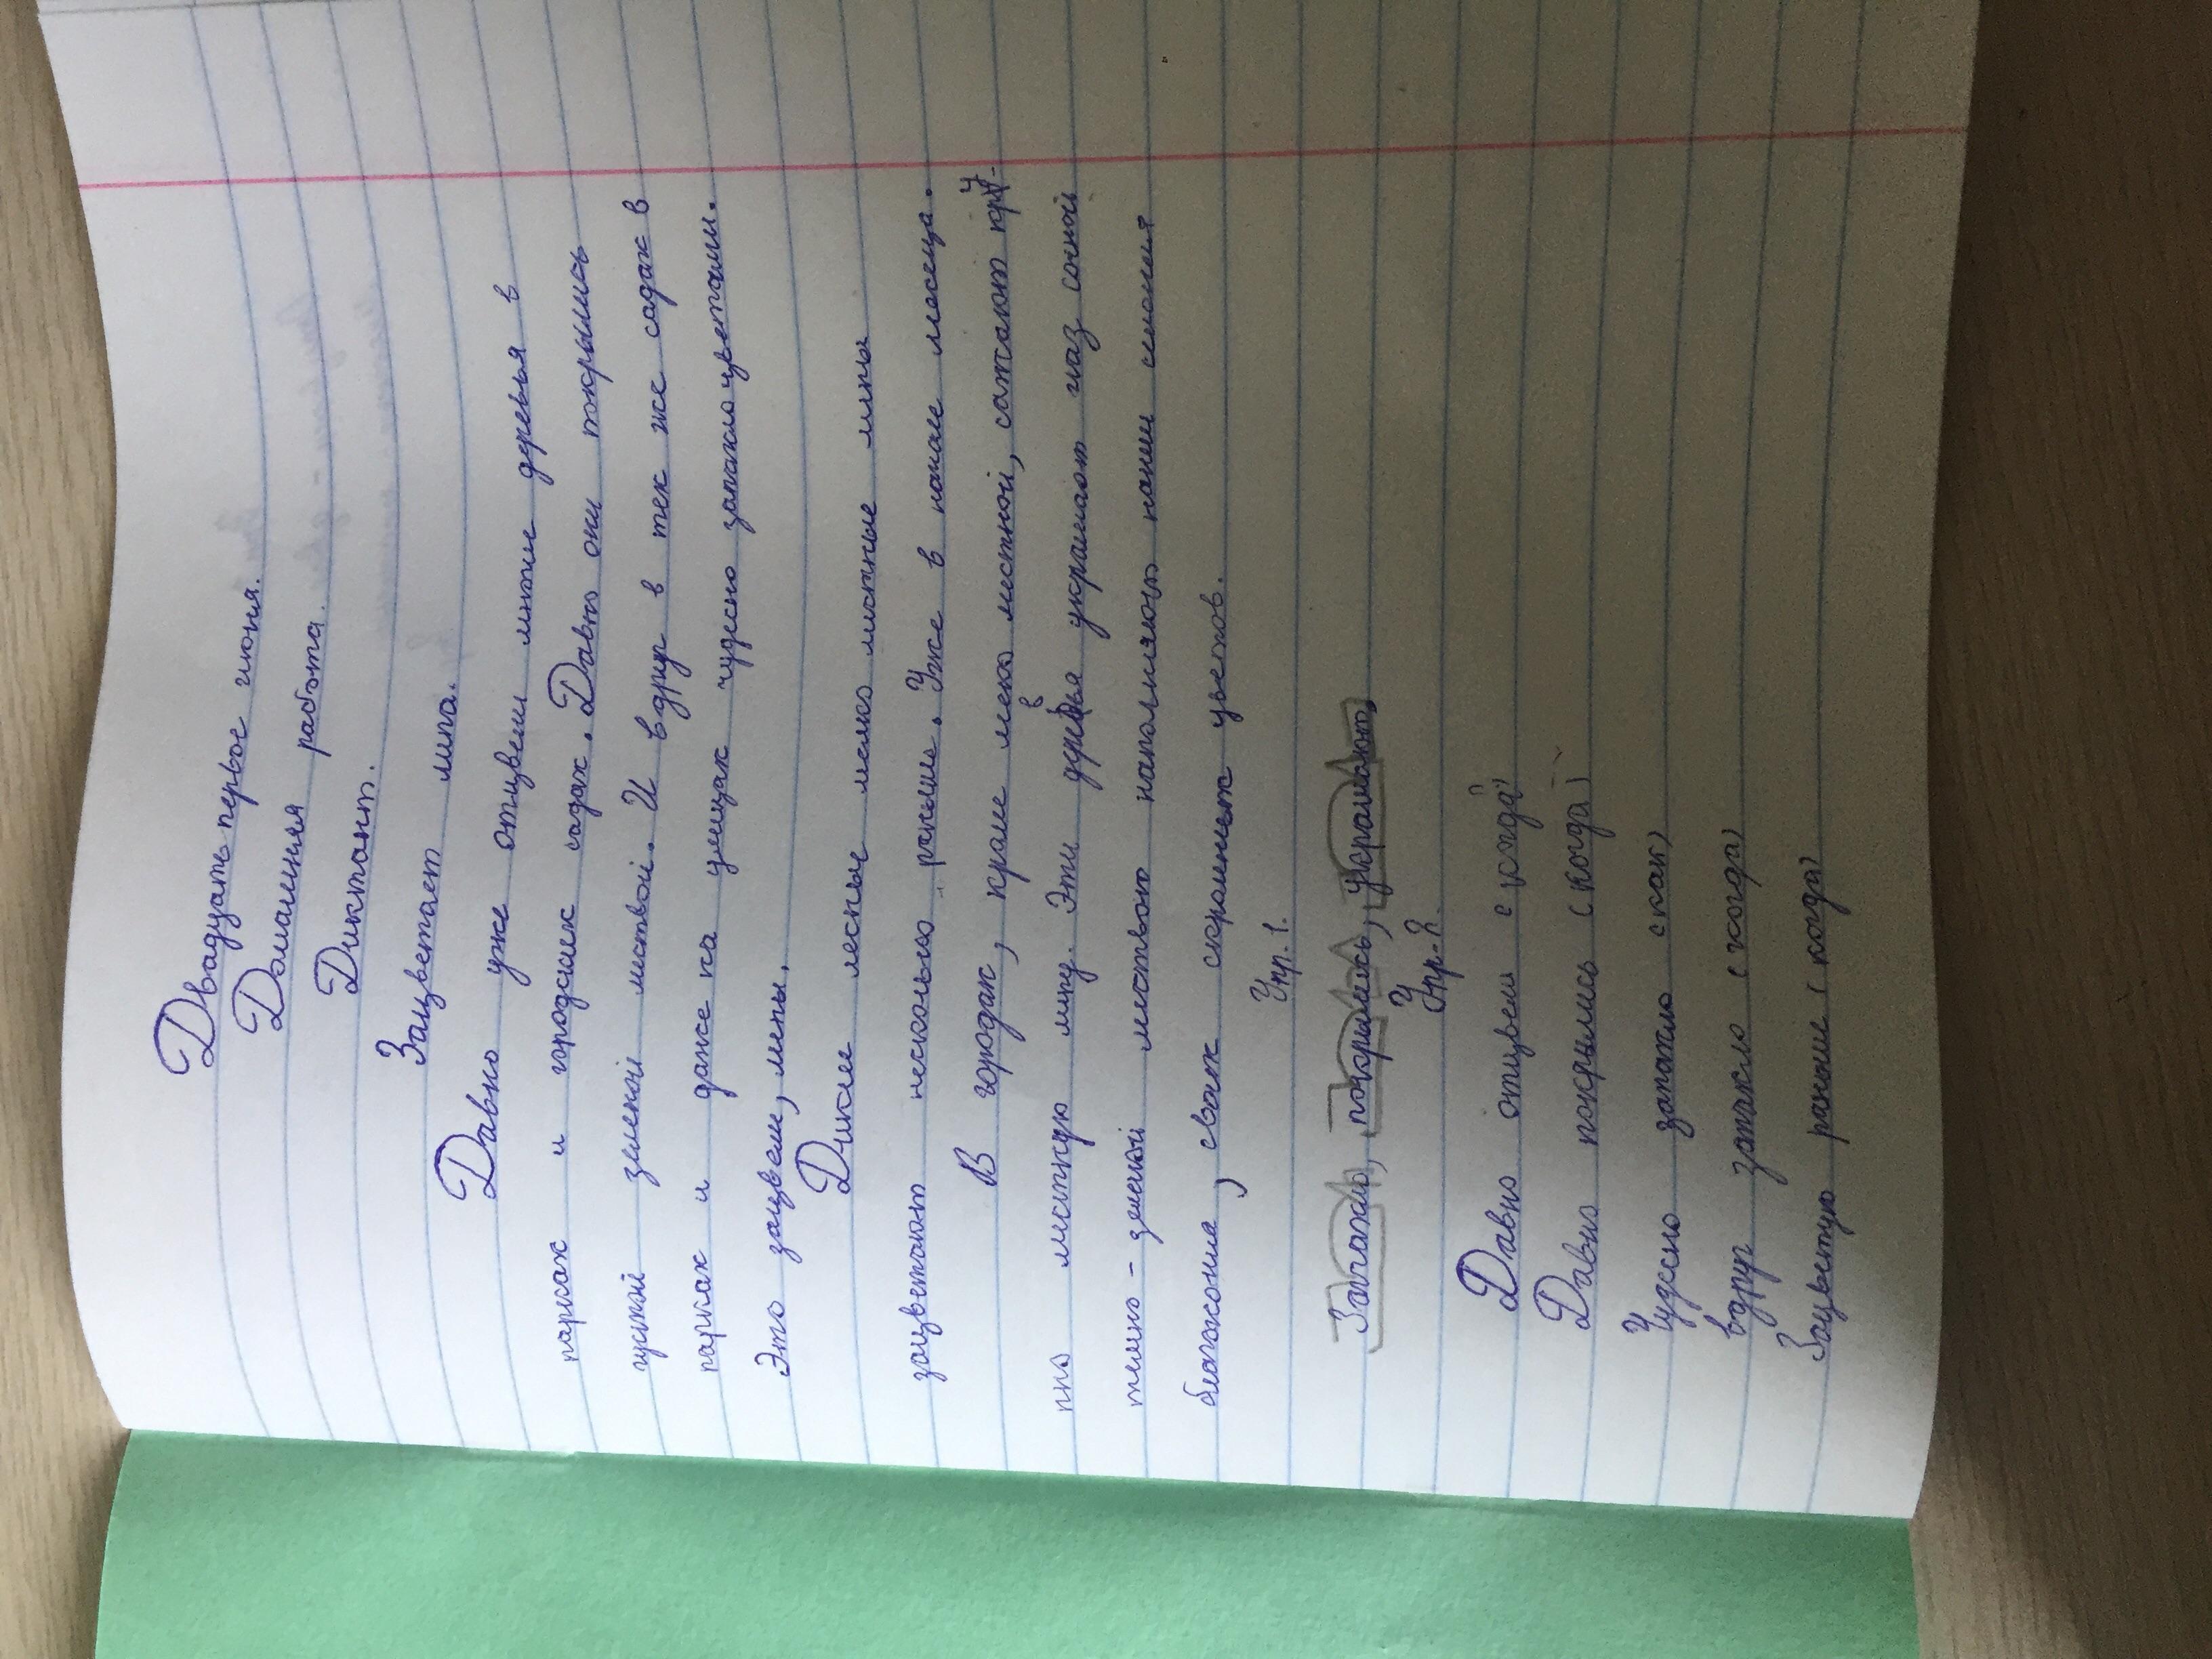 Двадцать первое июня.
Домашняя работа.
Диктант.
Зацветает липа.
Давно уже отцвели многие деревья в
парках и городских садах. Давно они покрылись
густой зеленой листвой. И вдруг в тех же садах в
парках и даже на улицах чудесно запахло цветами.
Это зацвели, липы.
Дикие лесные мелко листные липы
зацветают несколько раньше. Уже в начале месяца.
В городах, кроме мелко листной, сажают круп-
но листную липу. Эти деревья украшают глаз сочной
темно-зеленой листвою наполняют наши селения
благоханием, своих скромных цветов.
Упр. 1.
Запахло, покрылись, украшают,
Упр. 2.
Давно отцвели (когда)
Давно покрылись (когда)
Чудесно запахло (как)
вдруг запахло (когда)
раньше (когда)